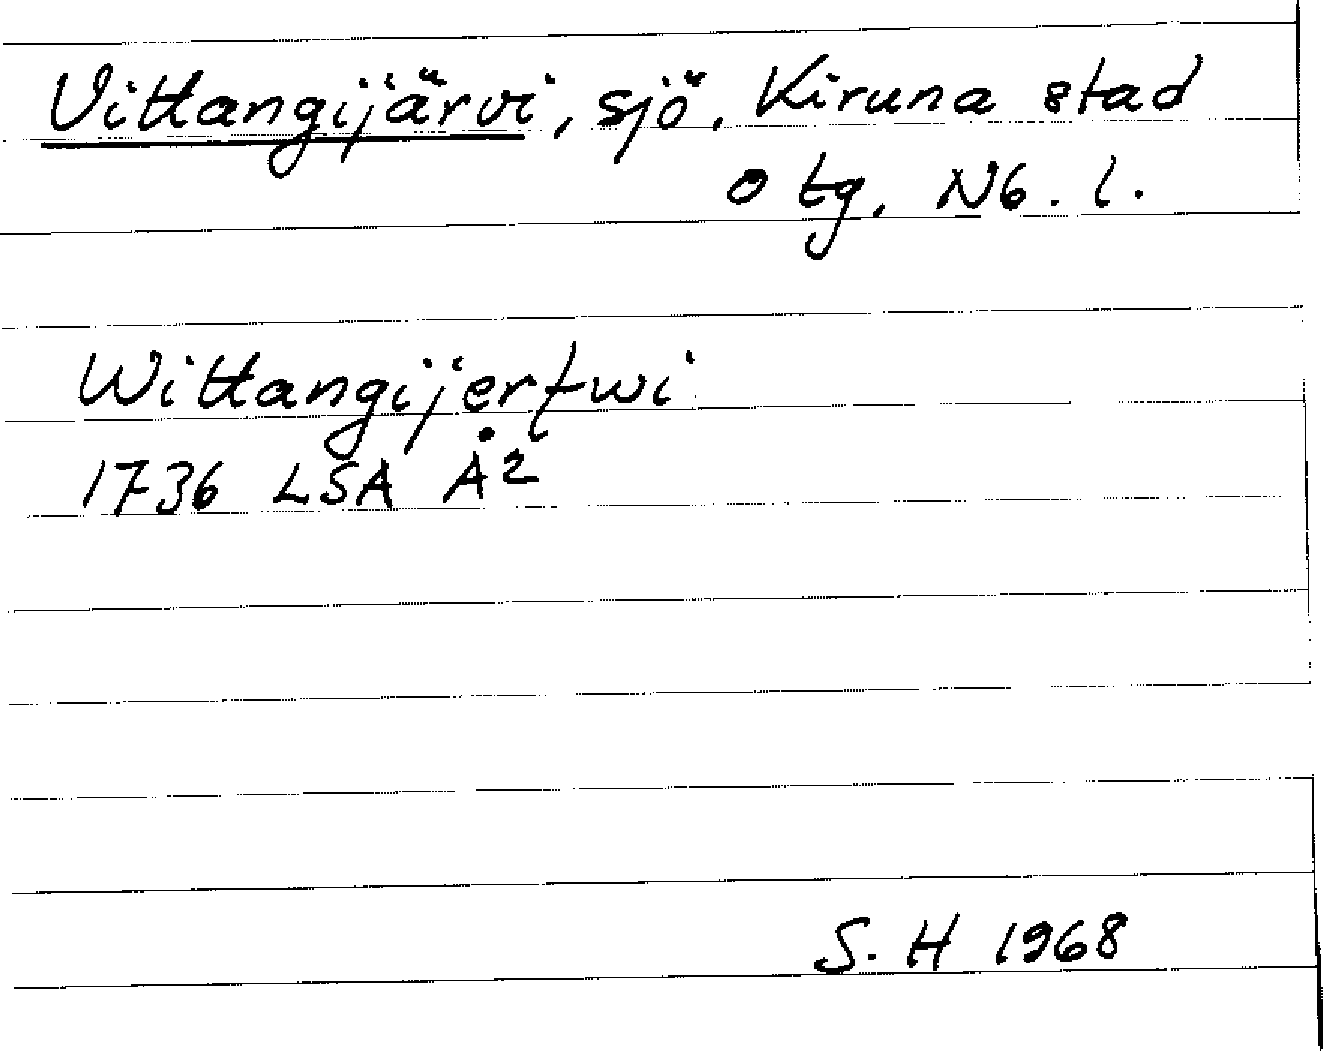 Vittangijärvi, sjö, Kiruna stad
o tg. Nb. l.
Wittangijerfwi
1736 LSA Å2
S. H 1968